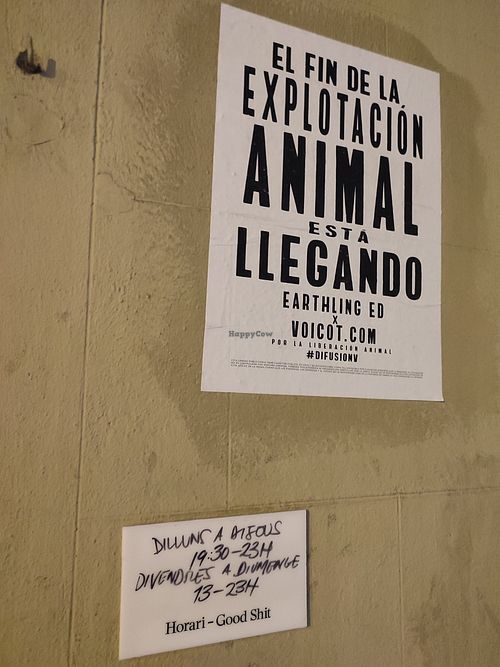 EL FIN DE LA
EXPLOTACIÓN
ANIMAL
ESTÁ
LLEGANDO
EARTHLING ED
X
VOICOT.COM
POR LA LIBERACIÓN ANIMAL
#DIFUSIONV
HappyCow
DILLUNS A DIJOUS
19:30-23H
DIVENDRES A DIUMENGE
13-23H
Horari - Good Shit